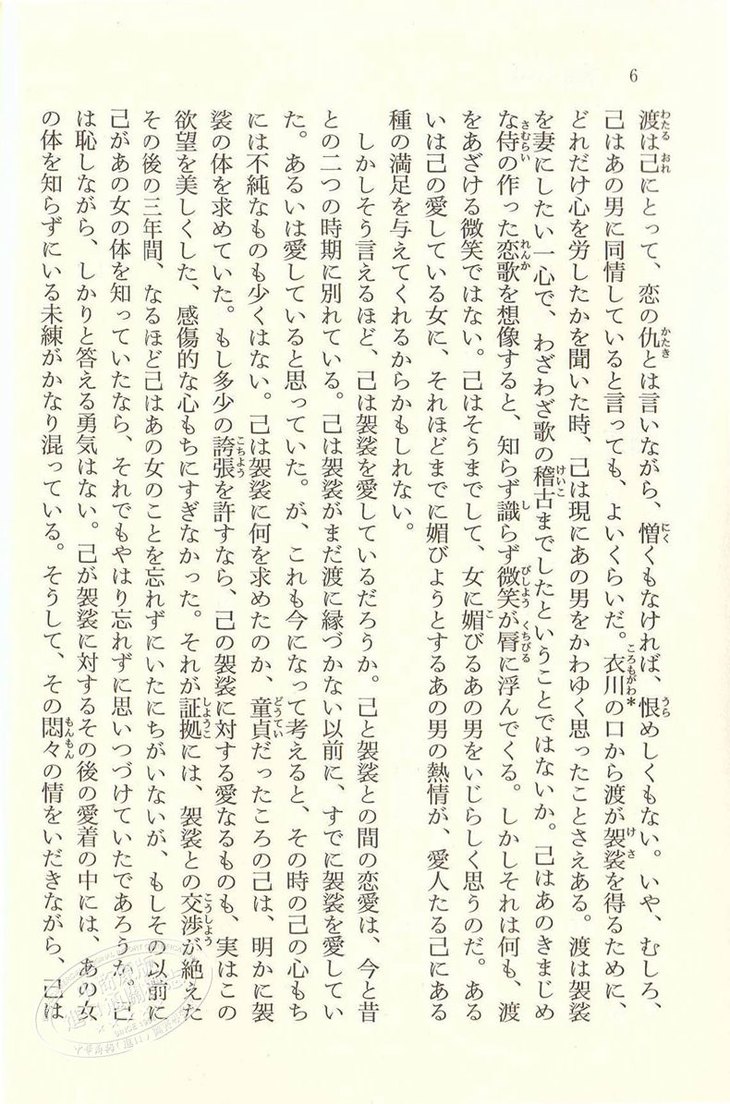 6
渡は己にとって、恋の仇とは言いながら、憎くもなければ、恨めしくもない。いや、むしろ、
己はあの男に同情していると言っても、よいくらいだ。衣川*の口から渡が袈裟を得るために、
どれだけ心を労したかを聞いた時、己は現にあの男をかわゆく思ったことさえある。渡は袈裟
を妻にしたい一心で、わざわざ歌の稽古までしたということではないか。己はあのきまじめ
な侍の作った恋歌を想像すると、知らず識らず微笑が唇に浮んでくる。しかしそれは何も、渡
をあざける微笑ではない。己はそうまでして、女に媚びるあの男をいじらしく思うのだ。ある
いは己の愛している女に、それほどまでに媚びようとするあの男の熱情が、愛人たる己にある
種の満足を与えてくれるからかもしれない。
しかしそう言えるほど、己は袈裟を愛しているだろうか。己と袈裟との間の恋愛は、今と昔
との二つの時期に別れている。己は袈裟がまだ渡に縁づかない以前に、すでに袈裟を愛してい
た。あるいは愛していると思っていた。が、これも今になって考えると、その時の己の心もち
には不純なものも少くはない。己は袈裟に何を求めたのか、童貞だったころの己は、明かに袈
裟の体を求めていた。もし多少の誇張を許すなら、己の袈裟に対する愛なるものも、実はこの
欲望を美しくした、感傷的な心もちにすぎなかった。それが証拠には、袈裟との交渉が絶えた
その後の三年間、なるほど己はあの女のことを忘れずにいたにちがいないが、もしその以前に
己があの女の体を知っていたなら、それでもやはり忘れずに思いつづけていたであろうか。己
は恥しながら、しかりと答える勇気はない。己が袈裟に対するその後の愛着の中には、あの女
の体を知らずにいる未練がかなり混っている。そうして、その悶々の情をいだきながら、己は